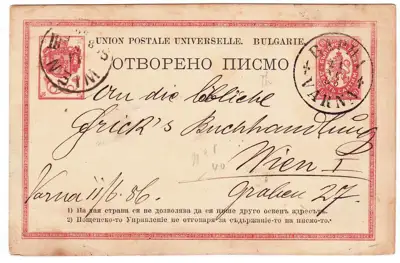 UNION POSTALE UNIVERSELLE. BULGARIE.
ОТВОРЕНО ПИСМО
ВАРНА
VARNA
WIEN
An die löbliche
Frick's Buchhandlung
Wien I
Graben 27.
Varna 11/6.86.
1) На тая страна си не дозволява да си пише друго освенъ адресътъ.
2) Пощенското-то Управление не отговаря за съдържание-то на писмо-то.